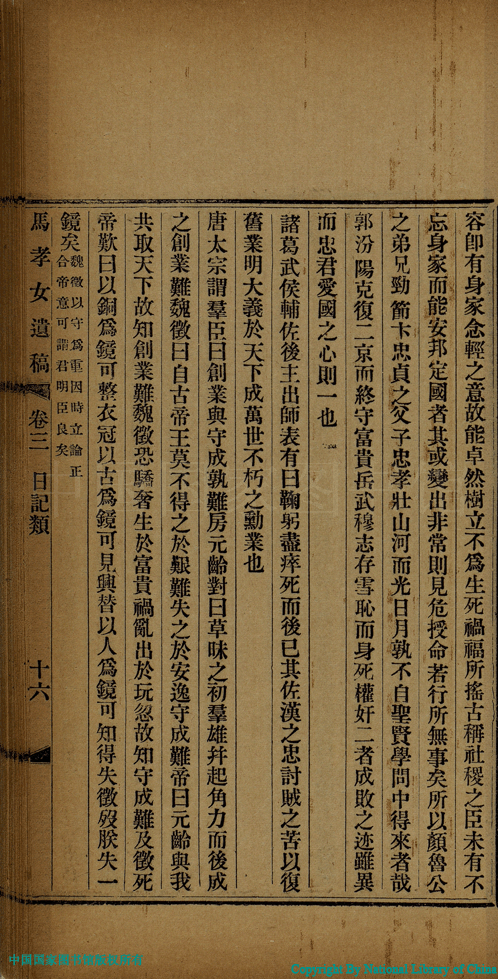 容卽有身家念輕之意故能卓然樹立不爲生死禍福所搖古稱社稷之臣未有不
忘身家而能安邦定國者其或變出非常則見危授命若行所無事矣所以顏魯公
之弟兄勁節卞忠貞之父子忠孝壯山河而光日月孰不自聖賢學問中得來者哉
郭汾陽克復二京而終守富貴岳武穆志存雪恥而身死權奸二者成敗之迹雖異
而忠君愛國之心則一也
諸葛武侯輔佐後主出師表有曰鞠躬盡瘁死而後已其佐漢之忠討賊之苦以復
舊業明大義於天下成萬世不朽之勳業也
唐太宗謂羣臣曰創業與守成孰難房元齡對曰草昧之初羣雄幷起角力而後成
之創業難魏徵曰自古帝王莫不得之於艱難失之於安逸守成難帝曰元齡與我
共取天下故知創業難魏徵恐驕奢生於富貴禍亂出於玩忽故知守成難及徵死
帝歎曰以銅爲鏡可整衣冠以古爲鏡可見興替以人爲鏡可知得失徵歿朕失一
鏡矣
魏徵以守爲重因時立論正
合帝意可謂君明臣良矣
馬孝女遺稿 卷三 日記類 十六
中国国家图书馆版权所有
Copyright By National Library of China